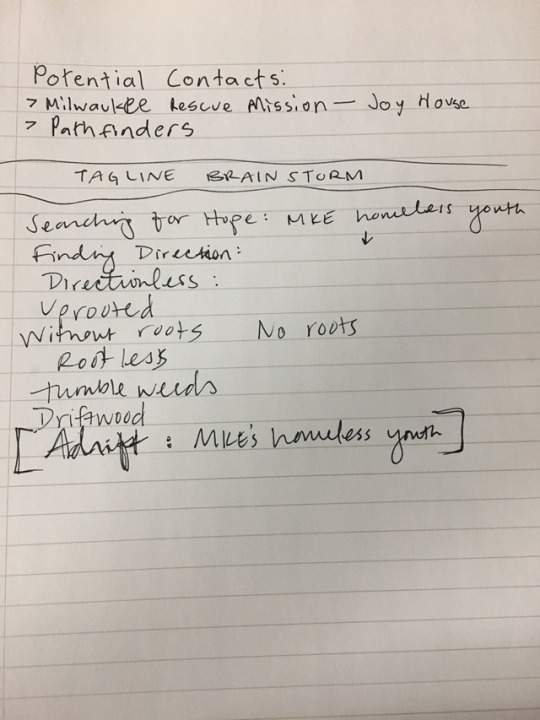 Potential Contacts:
> Milwaukee Rescue Mission — Joy House
> Pathfinders
TAGLINE BRAINSTORM
Searching for Hope: MKE homeless youth
↓
Finding Direction:
Directionless:
Uprooted
Without roots No roots
Rootless
tumble weeds
Driftwood
[Adrift: MKE's homeless youth]